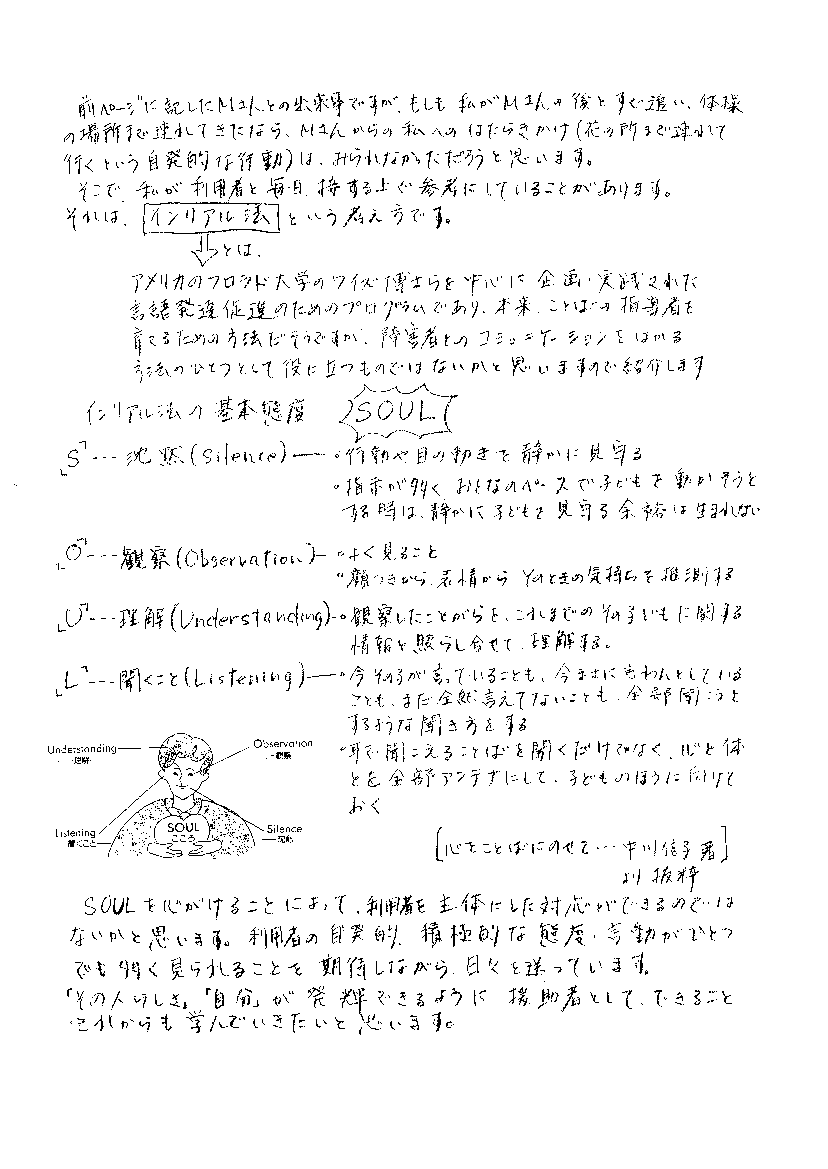 前ページに記したMさんとの出来事ですが、もしも 私がMさんの後をすぐ追い、体操
の場所まで連れてきたなら、Mさんからの私への はたらきかけ(花の所まで連れて
行くという自発的な行動)は、みられなかっただろうと思います。
そこで、私が利用者と毎日、接する上で参考にしていることがあります。
それは、インリアル法 という考え方です。
とは、
アメリカのコロラド大学のワイズ博士らを中心に企画・実践された
言語発達促進のためのプログラムであり、本来、ことばの指導者を
育てるための方法だそうですが、障害者とのコミュニケーションをはかる
方法のひとつとして役に立つものではないかと思いますので紹介します
インリアル法の基本態度 SOUL
「S」--- 沈黙(Silence) ― 。行動や目の動きを静かに見守る
。指示が多く おとなのペースで子どもを動かそうと
する時は、静かに子どもを見守る余裕は生まれない
「O」--- 観察(Observation) ― 。よく見ること
。顔つきから、表情から そのときの気持ちを推測する
「U」--- 理解(Understanding) ― 。観察したことがらを、これまでのその子どもに関する
情報と照らし合せて、理解する。
「L」--- 聞くこと(Listening) ― 。今その子が言っていることも、今まさに言わんとしている
ことも、まだ全然言えてないことも、全部聞こうと
するような聞き方をする
。耳で聞こえることばを聞くだけでなく、心と体
とを全部アンテナにして、子どものほうに向けて
おく
Understanding
・理解・
Observation
・観察
Listening
聞くこと
SOUL
こころ
Silence
・沈黙
[心をことばにのせて… 中川信子著]
より抜粋
SOULを心がけることによって、利用者を主体にした対応ができるのでは
ないかと思います。利用者の自発的、積極的な態度・言動がひとつ
でも多く見られることを期待しながら、日々を送っています。
「その人らしさ」、「自分」が発揮できるように援助者として、できること
をこれからも学んでいきたいと思います。